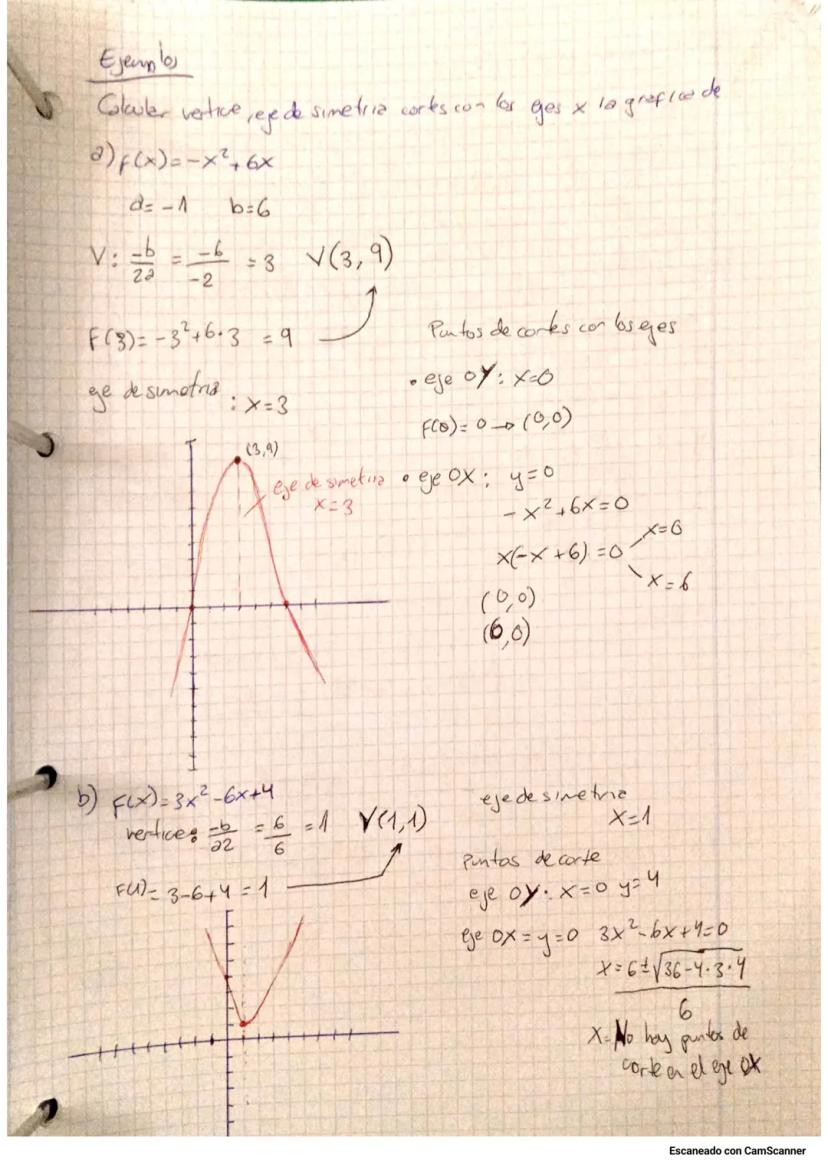 Ejemplos
Calcular vertice, eje de simetria cortes con los ejes x la grafica de
a) f(x) = -x² + 6x
a = -1 b = 6
V: -b/2a = -6/-2 = 3 V(3, 9)
F(3) = -3² + 6·3 = 9
eje de simetria : x = 3
Puntos de cortes con los ejes
• eje OY: x=0
F(0) = 0 → (0,0)
• eje OX: y=0
-x² + 6x = 0
x(-x + 6) = 0
x=0
x=6
(0,0)
(6,0)
(3,9)
eje de simetria
x=3
b) F(x) = 3x² - 6x + 4
vertice: -b/2a = 6/6 = 1 V(1,1)
F(1) = 3 - 6 + 4 = 1
eje de simetria
x=1
Puntos de corte
eje OY: x=0 y=4
eje OX = y=0 3x² - 6x + 4 = 0
x = 6 ± √36 - 4·3·4
6
x = No hay puntos de
corte en el eje OX
Escaneado con CamScanner